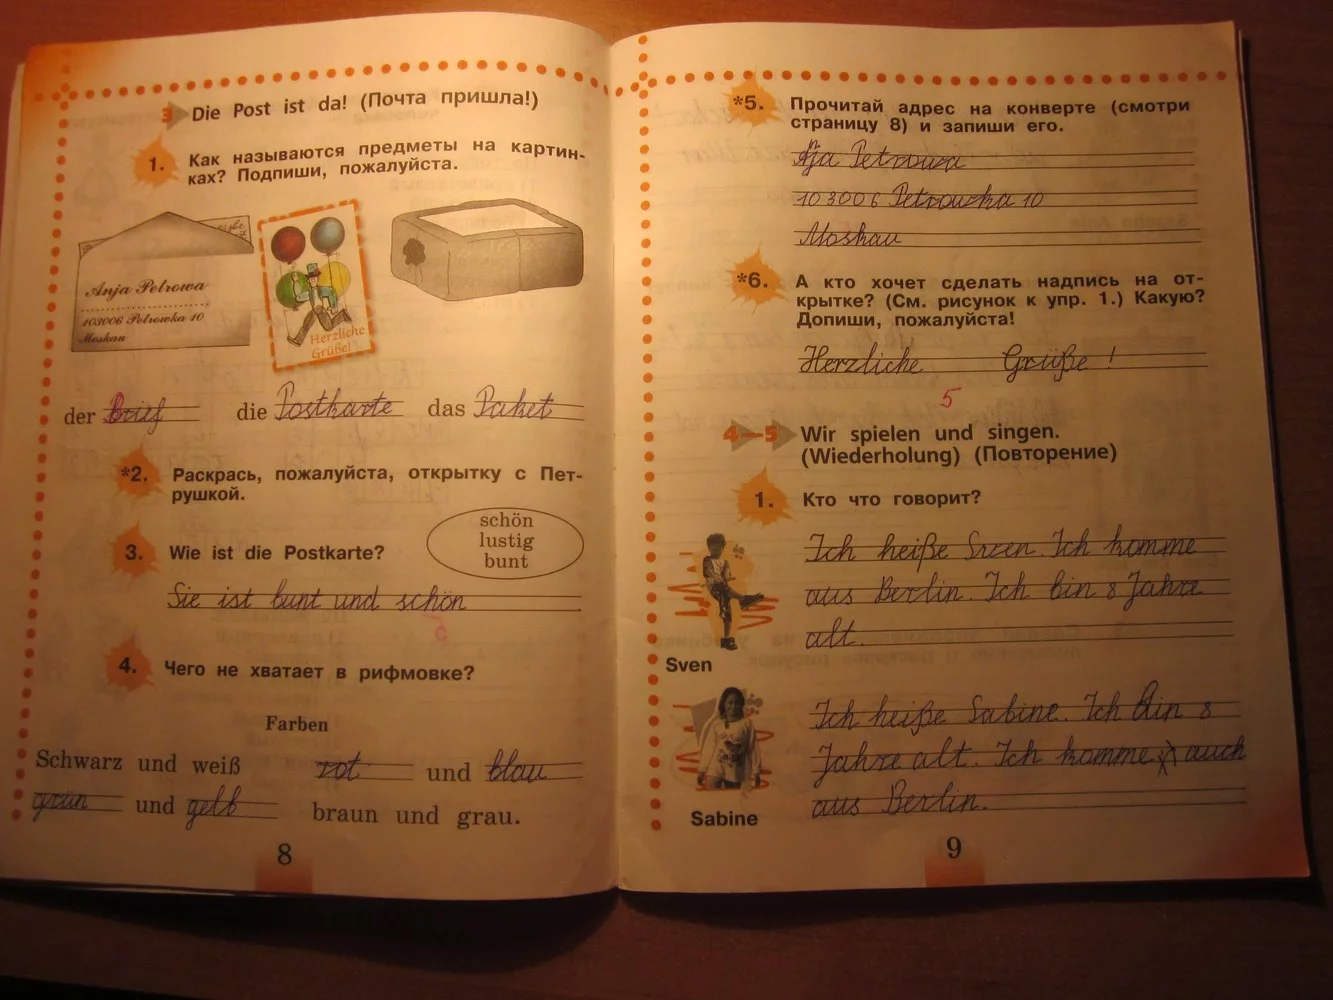 3 Die Post ist da! (Почта пришла!)
1. Как называются предметы на картин-
ках? Подпиши, пожалуйста.
Anja Petrowa
103006 Petrowka 10
Moskau
Herzliche
Grüße!
der Brief die Postkarte das Paket
*2. Раскрась, пожалуйста, открытку с Пет-
рушкой.
schön
lustig
bunt
3. Wie ist die Postkarte?
Sie ist bunt und schön
5
4. Чего не хватает в рифмовке?
Farben
Schwarz und weiß rot und blau
grün und gelb braun und grau.
8
*5. Прочитай адрес на конверте (смотри
страницу 8) и запиши его.
Aja Petrowa
103006 Petrowka 10
Moskau
*6. А кто хочет сделать надпись на от-
крытке? (См. рисунок к упр. 1.) Какую?
Допиши, пожалуйста!
Herzliche Grüße!
5
4–5 Wir spielen und singen.
(Wiederholung) (Повторение)
1. Кто что говорит?
Ich heiße Sveen. Ich komme
aus Berlin. Ich bin 8 Jahre
alt.
Sven
Ich heiße Sabine. Ich bin 8
Jahre alt. Ich komme auch
aus Berlin.
Sabine
9